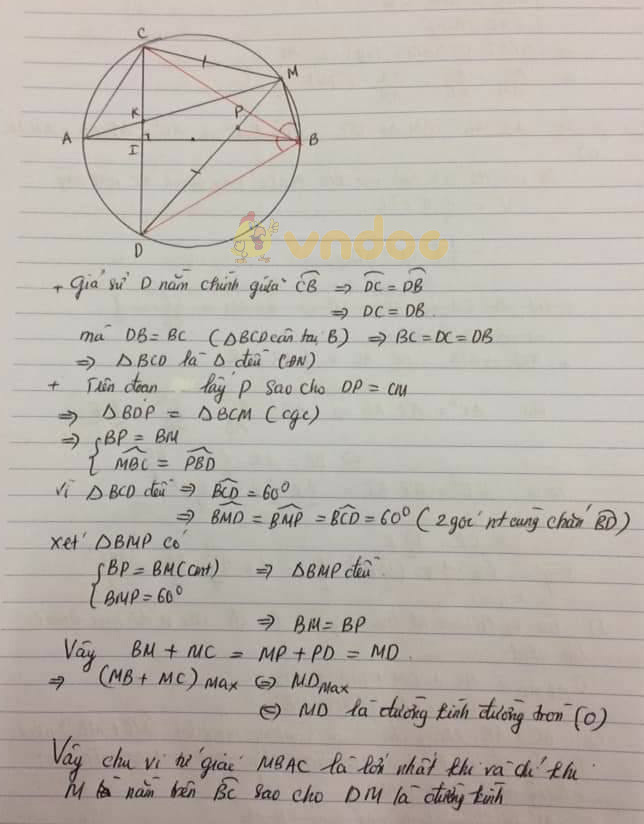 C
M
K
P
A
I
B
D
vndoc
+ Giả sử D nằm chính giữa CB ⇒ DC = DB
⇒ DC = DB.
mà DB = BC (ΔBCD cân tại B) ⇒ BC = DC = DB
⇒ ΔBCD là Δ đều (ĐN)
+ Trên đoạn lấy P sao cho DP = CM
⇒ ΔBDP = ΔBCM (cgc)
⇒ { BP = BM
MBC = PBD
Vì ΔBCD đều ⇒ BCD = 60°
⇒ BMD = BMP = BCD = 60° (2 góc nt cùng chắn BD)
Xét ΔBMP có
{ BP = BM (cmt) ⇒ ΔBMP đều.
BMP = 60°
⇒ BM = BP
Vậy BM + MC = MP + PD = MD.
⇒ (MB + MC) Max ⇔ MD Max
⇔ MD là đường kính đường tròn (O)
Vậy chu vi tứ giác MBAC là lớn nhất khi và chỉ khi
M nằm trên BC sao cho DM là đường kính